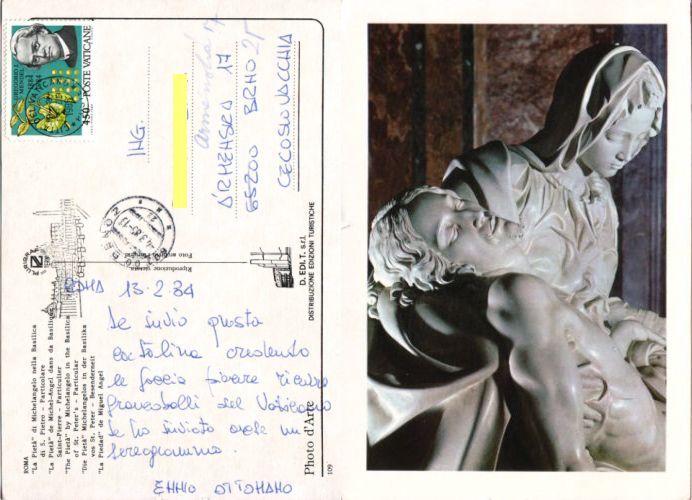 ROMA
"La Pietà" di Michelangelo nella Basilica
di S. Pietro - Particolare
"La Pietà" de Michel-Angel dans da Basilique
Saint-Pierre - Particulier
"The Pietà" by Michelangelo in the Basilica
of St. Peter's - Particular
"Die Pietà" Michelangelos in der Basilika
von St. Peter - Besenderneit
"La Piedad" de Miguel Angel
ROMA 13.2.84
Le invio questa
cartolina credendo
le faccia piacere
francobolli del Vaticano
le ho inviato
aerogramma.
ENNIO OTTOMANO
Photo d'Arte
109
D. EDI.T. s.r.l.
DISTRIBUZIONE EDIZIONI TURISTICHE
Riproduzione vietata
POSTE VATICANE
450
GREGORIO
MENDEL
1884
1984
ING.
17
ARMENSKA 17
65200 BRNO 25
CECOSLOVACCHIA